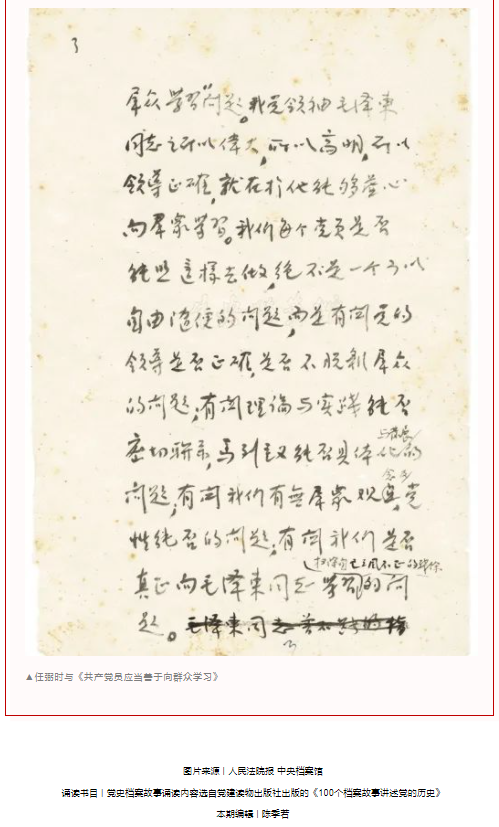 3
群众学习"问题。我党领袖毛泽東
同志之所以偉大，所以高明，所以
领导正确，就在於他能够虚心
向羣眾学習。我们每个党员是否
能照這樣去做，绝不是一个可以
自由随便的问题，而是有関党的
领导是否正確，是否不脱離群众
的问题；有関理論与实践能否
密切联系，馬列主义能否具体化的
问题；有関我们有無羣眾观点，党
性純否的问题；有関我们是否
真正向毛泽東同志学習的问
题。毛泽東同志
3
▲任弼时与《共产党员应当善于向群众学习》
图片来源丨人民法院报 中央档案馆
诵读书目丨党史档案故事诵读内容选自党建读物出版社出版的《100个档案故事讲述党的历史》
本期编辑丨陈季若